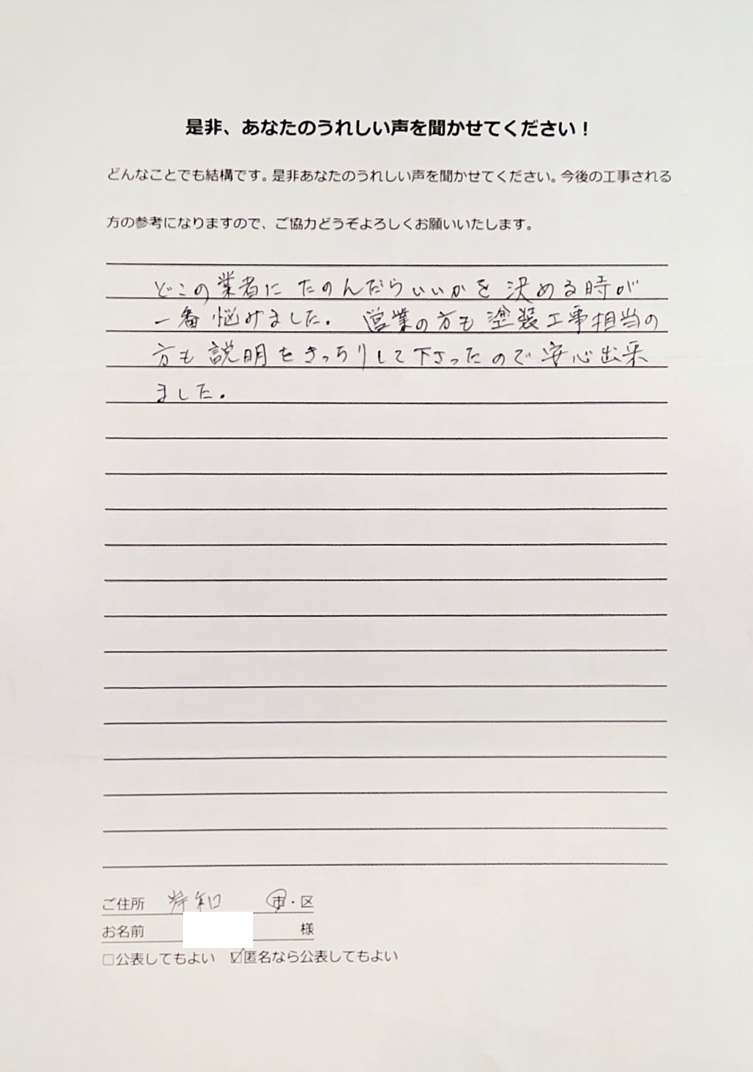 是非、あなたのうれしい声を聞かせてください！
どんなことでも結構です。是非あなたのうれしい声を聞かせてください。今後の工事される
方の参考になりますので、ご協力どうぞよろしくお願いいたします。
どこの業者にたのんだらいいかを決める時が
一番悩みました。営業の方も塗装工事担当の
方も説明をきっちりして下さったので安心出来
ました。
ご住所 岸和 市・区
お名前 様
□公表してもよい ☑匿名なら公表してもよい